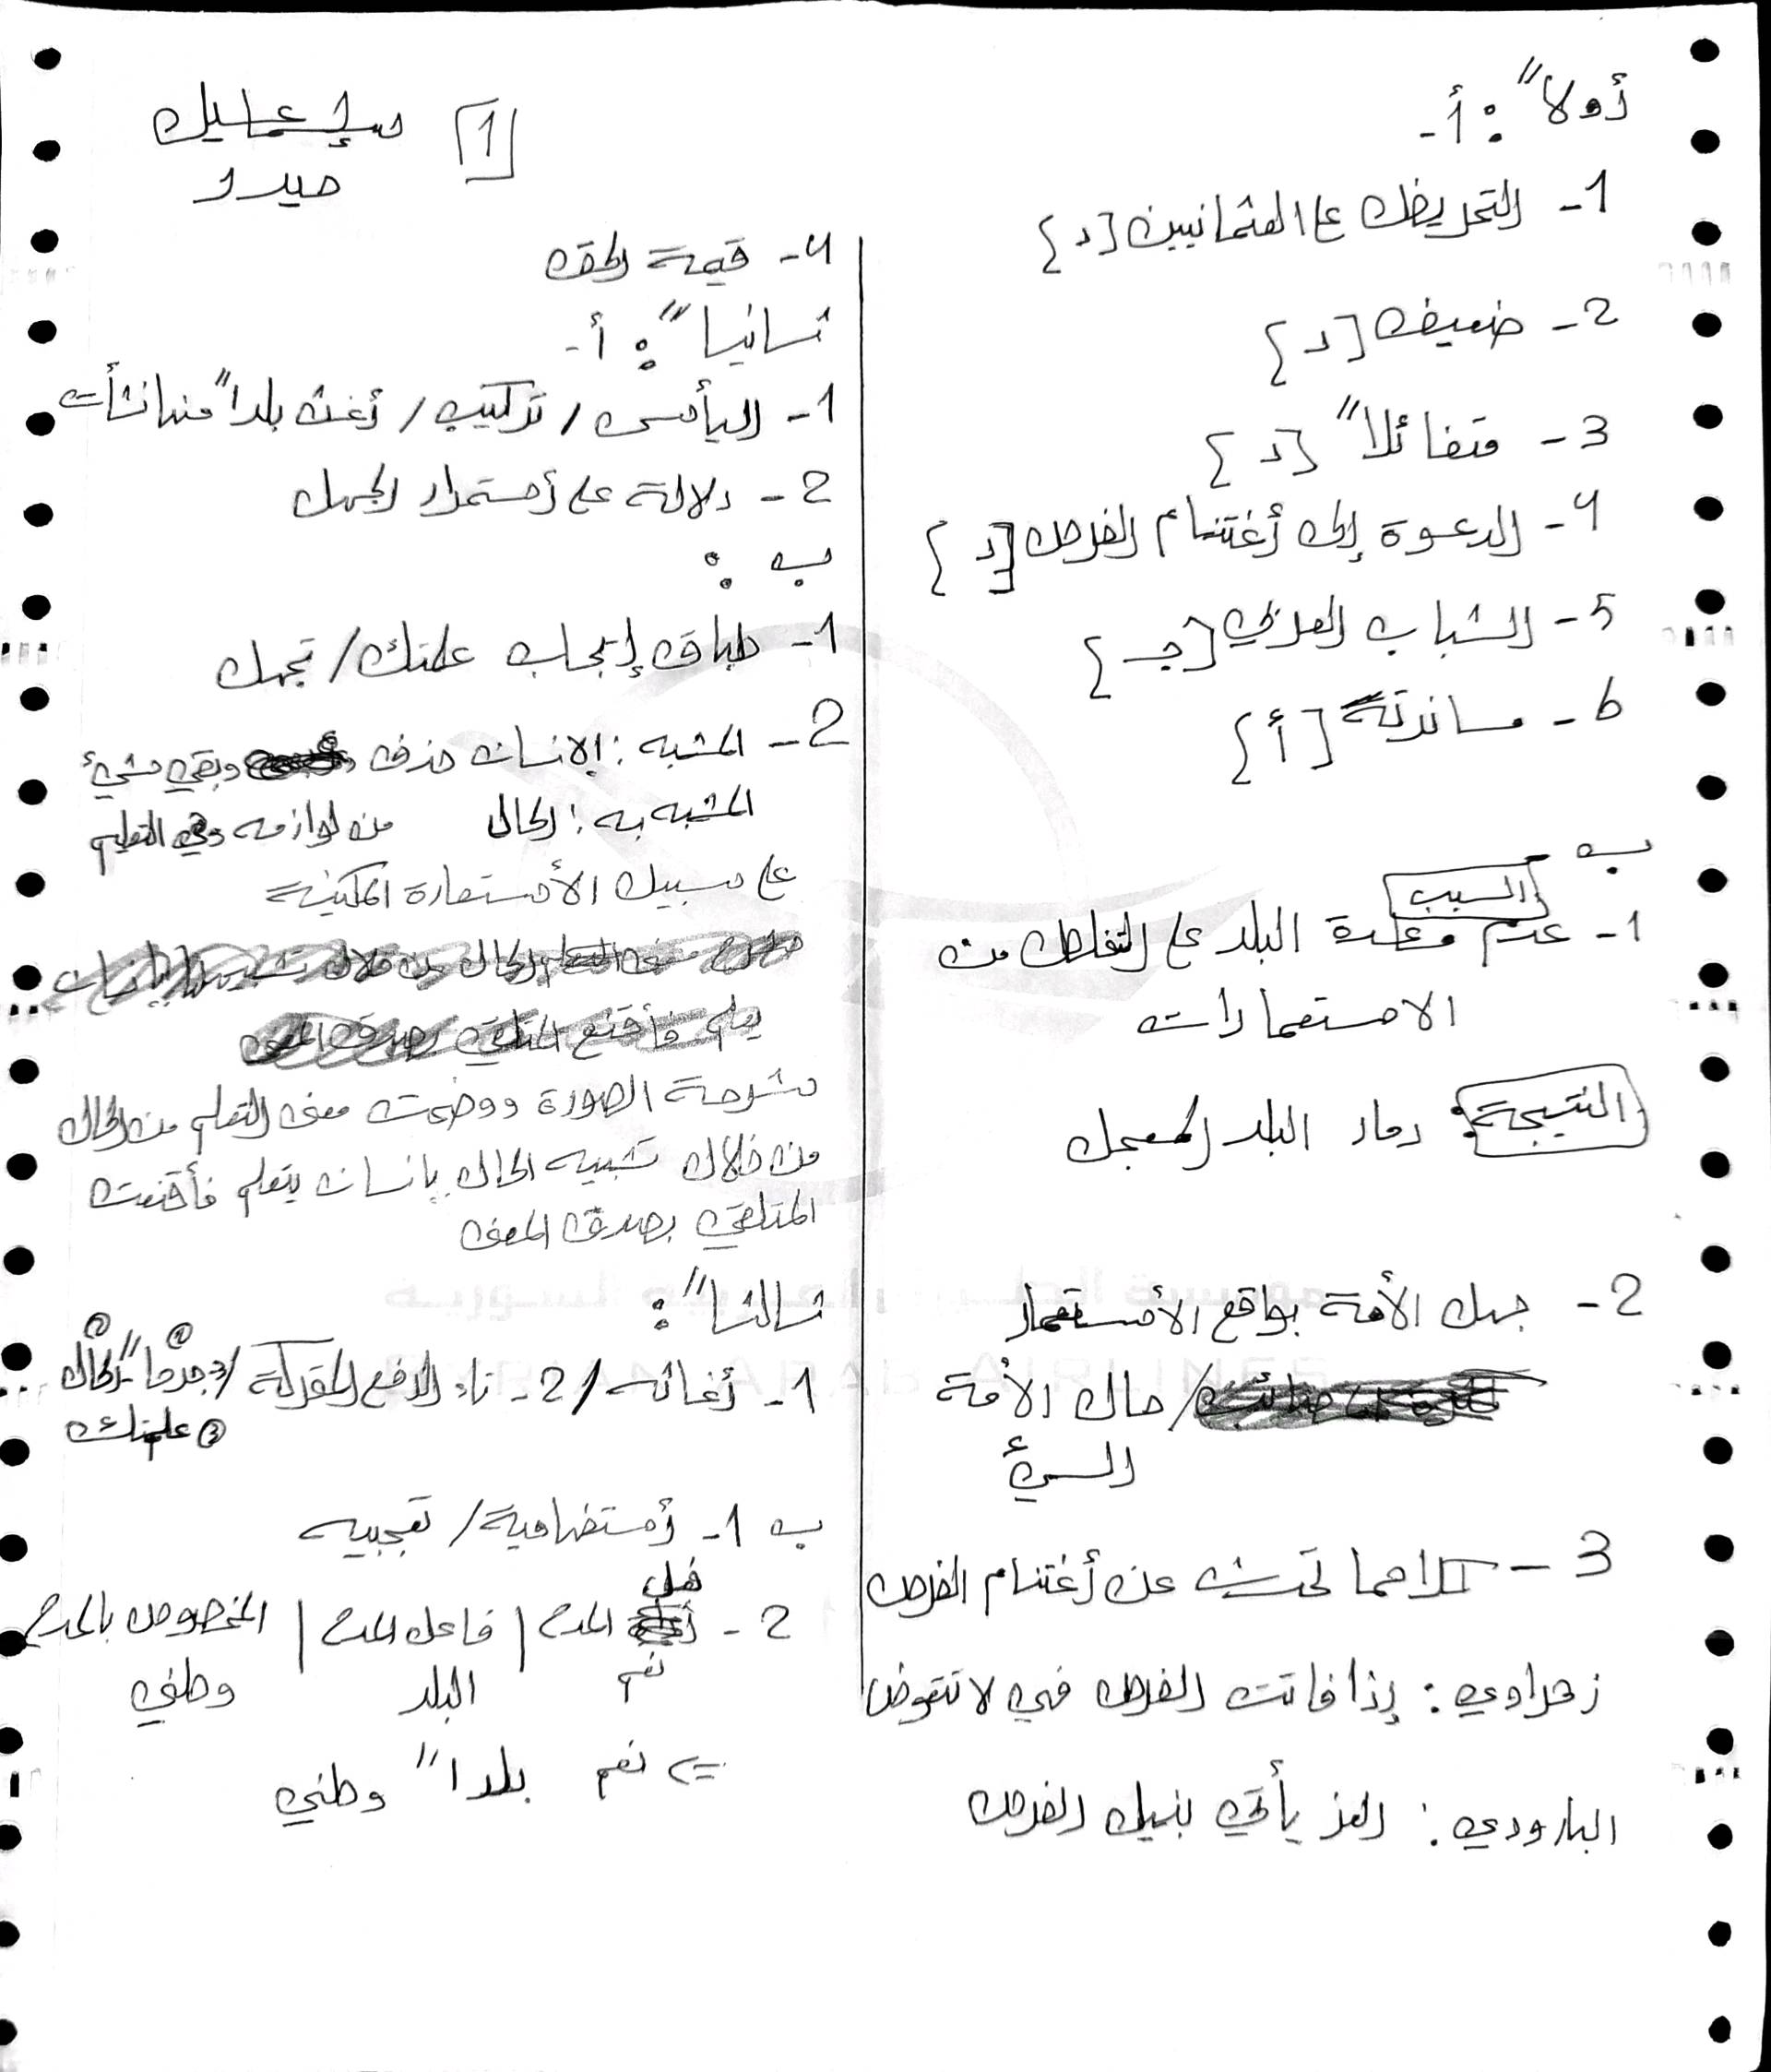 إسماعيل
حيدر
[1]
أولا" : أ-
1- التحريض على العثمانيين [د]
2- ضعيف [د]
3- متفائلا" [د]
4- الدعوة إلى أغتنام الفرص [د]
5- الشباب العربي [جـ]
6- مساندته [أ]
ب-
السبب
1- عدم وحدة البلد على التخلص من
الاستعمارات
النتيجة: دمار البلد المعجل
2- جهل الأمة بواقع الأستعمار
/ حال الأمة
السيئ
3- كلاهما تحدث عن أغتنام الفرص
زهراوي: إذا فاتت الفرص فهي لا تتعوض
البارودي: العز يأتي بنيل الفرص
4- قيمة الحق
ثانيا" : أ-
1- اليأس / تركيب / أغث بلدا" منها نشأت
2- دلالة على أستمرار الجهل
ب :
1- طباق إيجاب علمتك / تجهل
2- المشبه: الإنسان حذف وبقي شيئ
المشبه به: الحال من لوازمه وهي التعليم
على سبيل الأستعارة المكنية
شرحت الصورة ووضحت معنى التعلم من الحال
من خلال تشبيه الحال بإنسان يتعلم فأقنعت
المتلقي بصدق المعنى
ثالثا" :
1- أغاثه / 2- تاء الرفع المتحركة / 3-
علمتك
ب 1- أستفهامية / تعجبيه
2- فعل المدح | فاعل المدح | المخصوص بالمدح
نعم البلد وطني
=> نعم بلدا" وطني